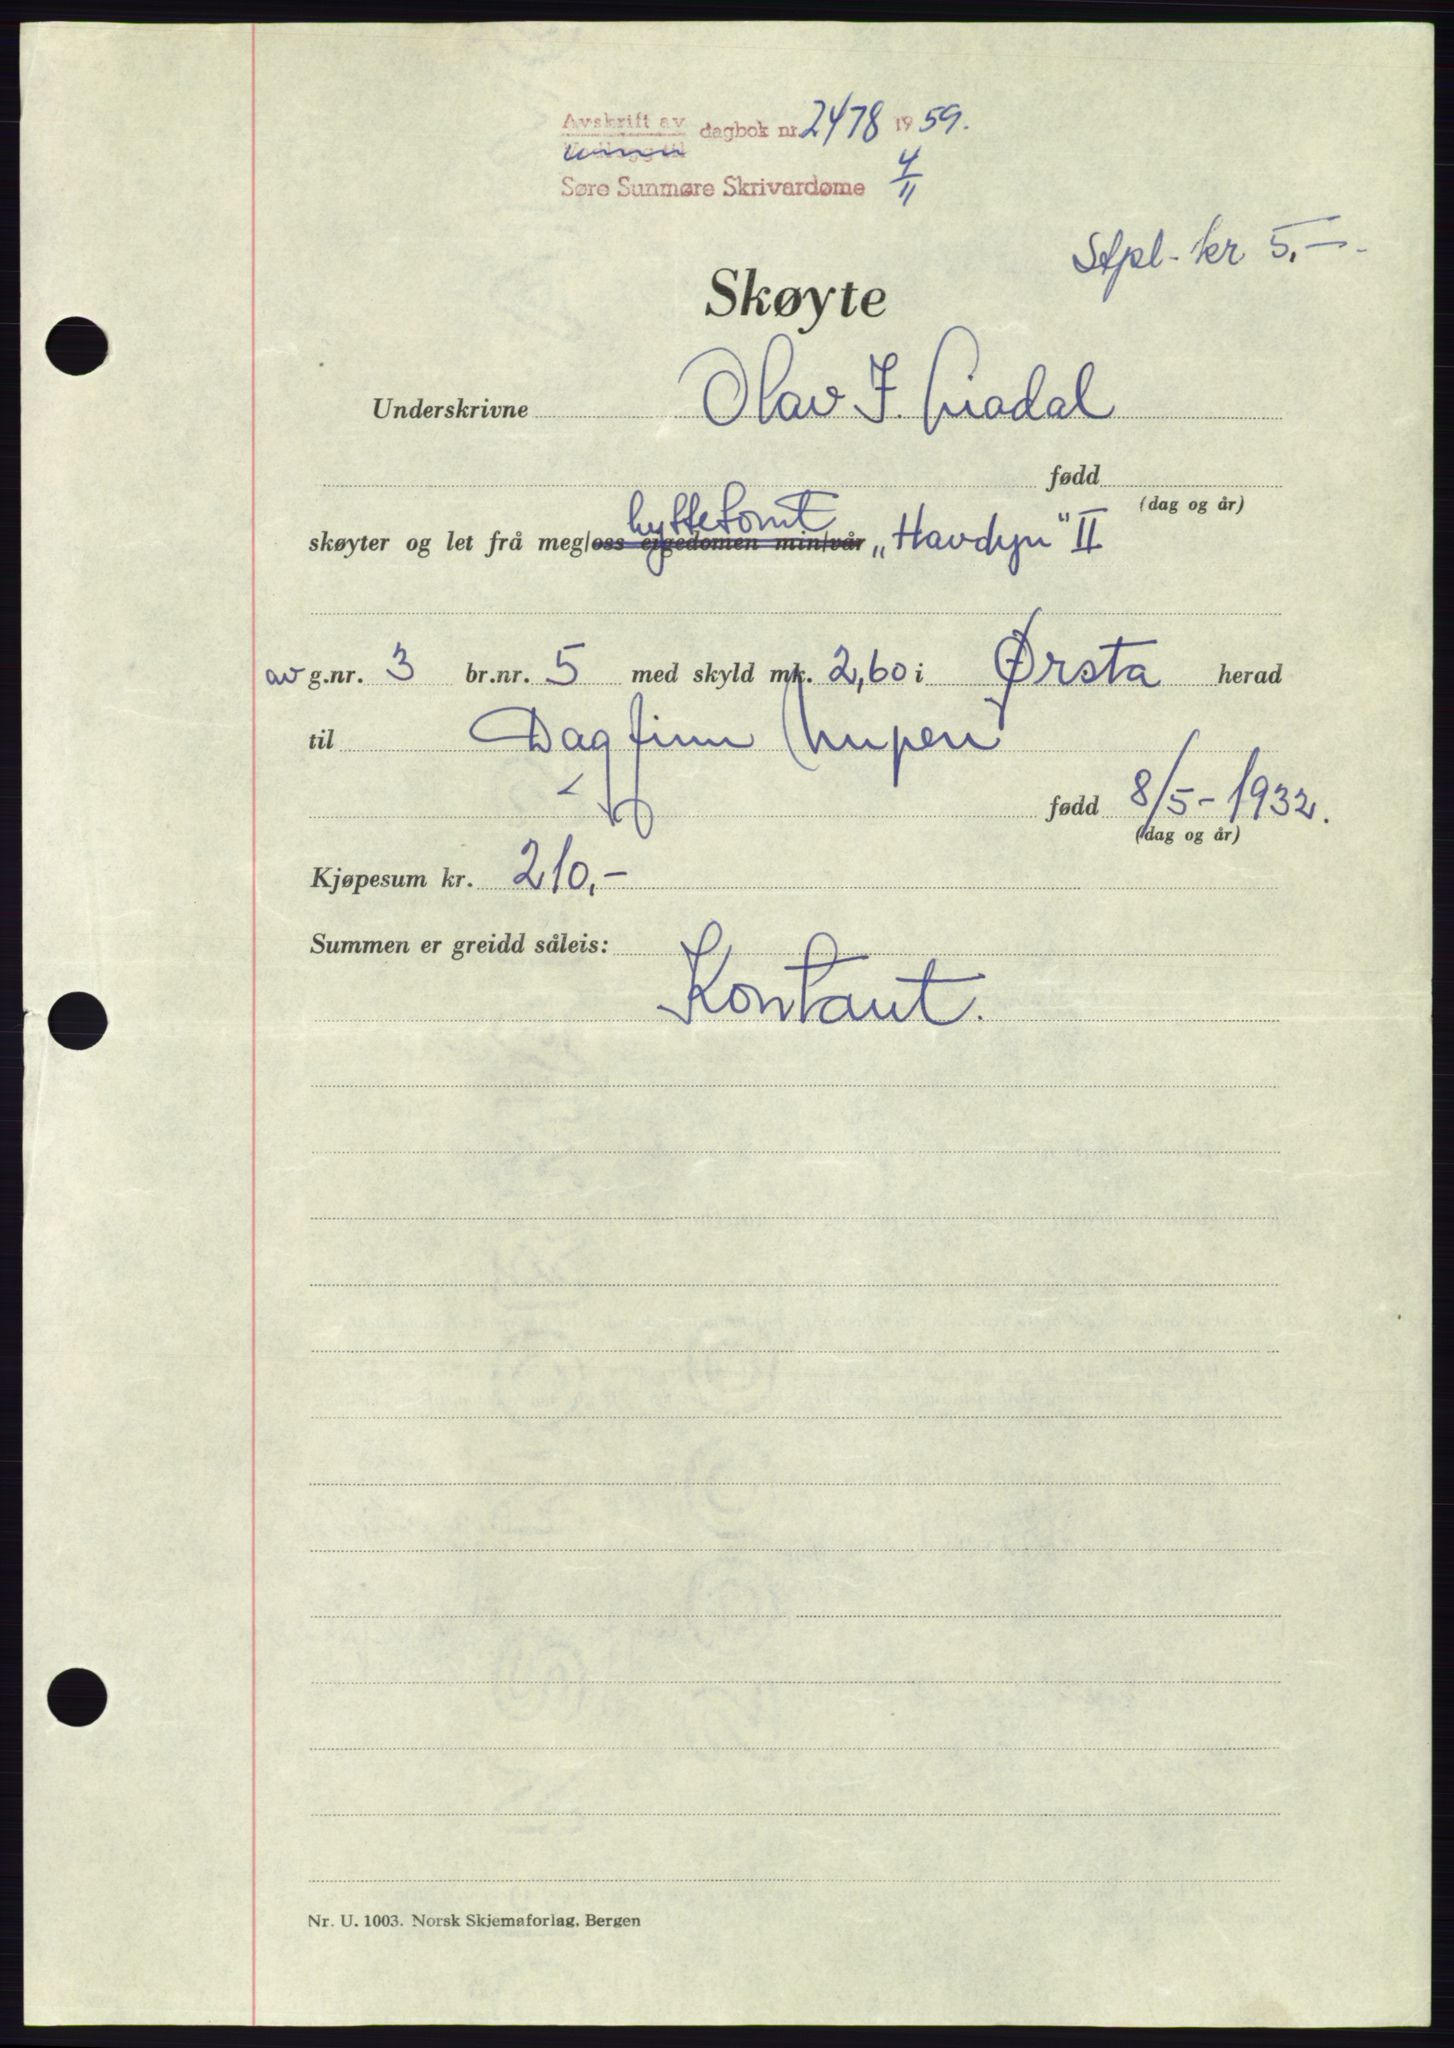 Avskrift av dagbok nr 2478 1959.
Søre Sunmøre Skrivardøme 4/11
Stpl. kr 5,-.
Skøyte
Underskrivne Olav J. Liadal
fødd
(dag og år)
hyttetomt
skøyter og let frå meg/oss eigedomen min/vår „Havdyn" II
av g.nr. 3 br.nr. 5 med skyld mk. 2,60 i Ørsta herad
til Dagfinn
fødd 8/5-1932.
(dag og år)
Kjøpesum kr. 210,-
Summen er greidd såleis:
Kontant.
Nr. U. 1003. Norsk Skjemaforlag, Bergen